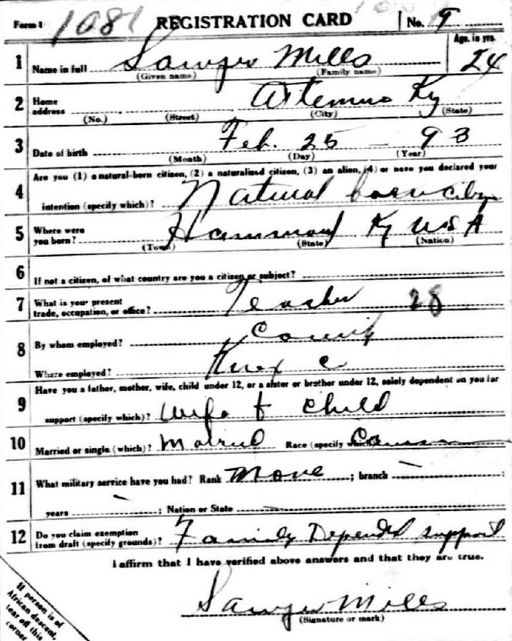 Form 1 1081 REGISTRATION CARD No. 9
Age, in yrs.
1 Name in full Sawyer Mills 24
(Given name) (Family name)
2 Home address Artemus Ky
(No.) (Street) (City) (State)
3 Date of birth Feb. 25 - 93
(Month) (Day) (Year)
4 Are you (1) a natural-born citizen, (2) a naturalized citizen, (3) an alien, (4) or have you declared your
intention (specify which)? Natural born
5 Where were you born? Hammond Ky USA
(Town) (State) (Nation)
6 If not a citizen, of what country are you a citizen or subject?
7 What is your present trade, occupation, or office? Teacher 28
8 By whom employed? County
Where employed? Knox C
9 Have you a father, mother, wife, child under 12, or a sister or brother under 12, solely dependent on you for
support (specify which)? Wife & child
10 Married or single (which)? Married Race (specify which)?
11 What military service have you had? Rank None ; branch -
years - ; Nation or State
12 Do you claim exemption from draft (specify grounds)? Family Depended support
I affirm that I have verified above answers and that they are true.
Sawyer Mills
(Signature or mark)
If person is of
African descent,
tear off this
corner